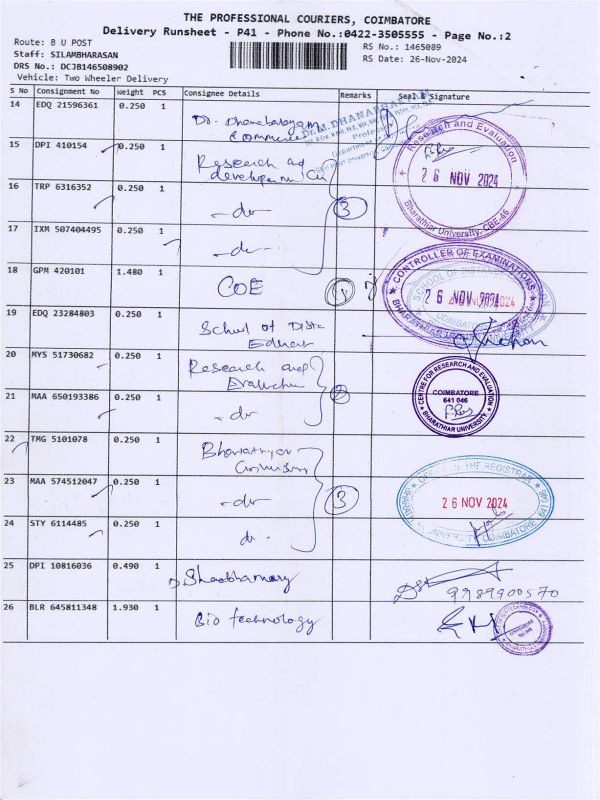 THE PROFESSIONAL COURIERS, COIMBATORE
Delivery Runsheet - P41 - Phone No.:0422-3505555 - Page No.:2
Route: B U POST
RS No.: 1465089
Staff: SILAMBHARASAN
RS Date: 26-Nov-2024
DRS No.: DCJB146508902
Vehicle: Two Wheeler Delivery
S No Consignment No Weight PCS Consignee Details Remarks Seal & Signature
14 EDQ 21596361 0.250 1
Commerce
15 DPI 410154 0.250 1 Research and
16 TRP 6316352 0.250 1 -do- 3
17 IXM 507404495 0.250 1 -do-
18 GPM 420101 1.480 1 COE
19 EDQ 23284803 0.250 1 School of Dist
20 MYS 51730682 0.250 1 Research and
21 MAA 650193386 0.250 1 -do-
22 TMG 5101078 0.250 1
23 MAA 574512047 0.250 1 -do- 3
24 STY 6114485 0.250 1 do -
25 DPI 10816036 0.490 1
9989900570
26 BLR 645811348 1.930 1 Bio technology
Research and Evaluation
26 NOV 2024
Bharathiar University, CBE-46
CONTROLLER OF EXAMINATIONS
SCHOOL OF DISTANCE
26 NOV 2024
CENTRE FOR RESEARCH AND EVALUATION
COIMBATORE
641 046
BHARATHIAR UNIVERSITY
OFFICE OF THE REGISTRAR
26 NOV 2024
UNIVERSITY, COIMBATORE